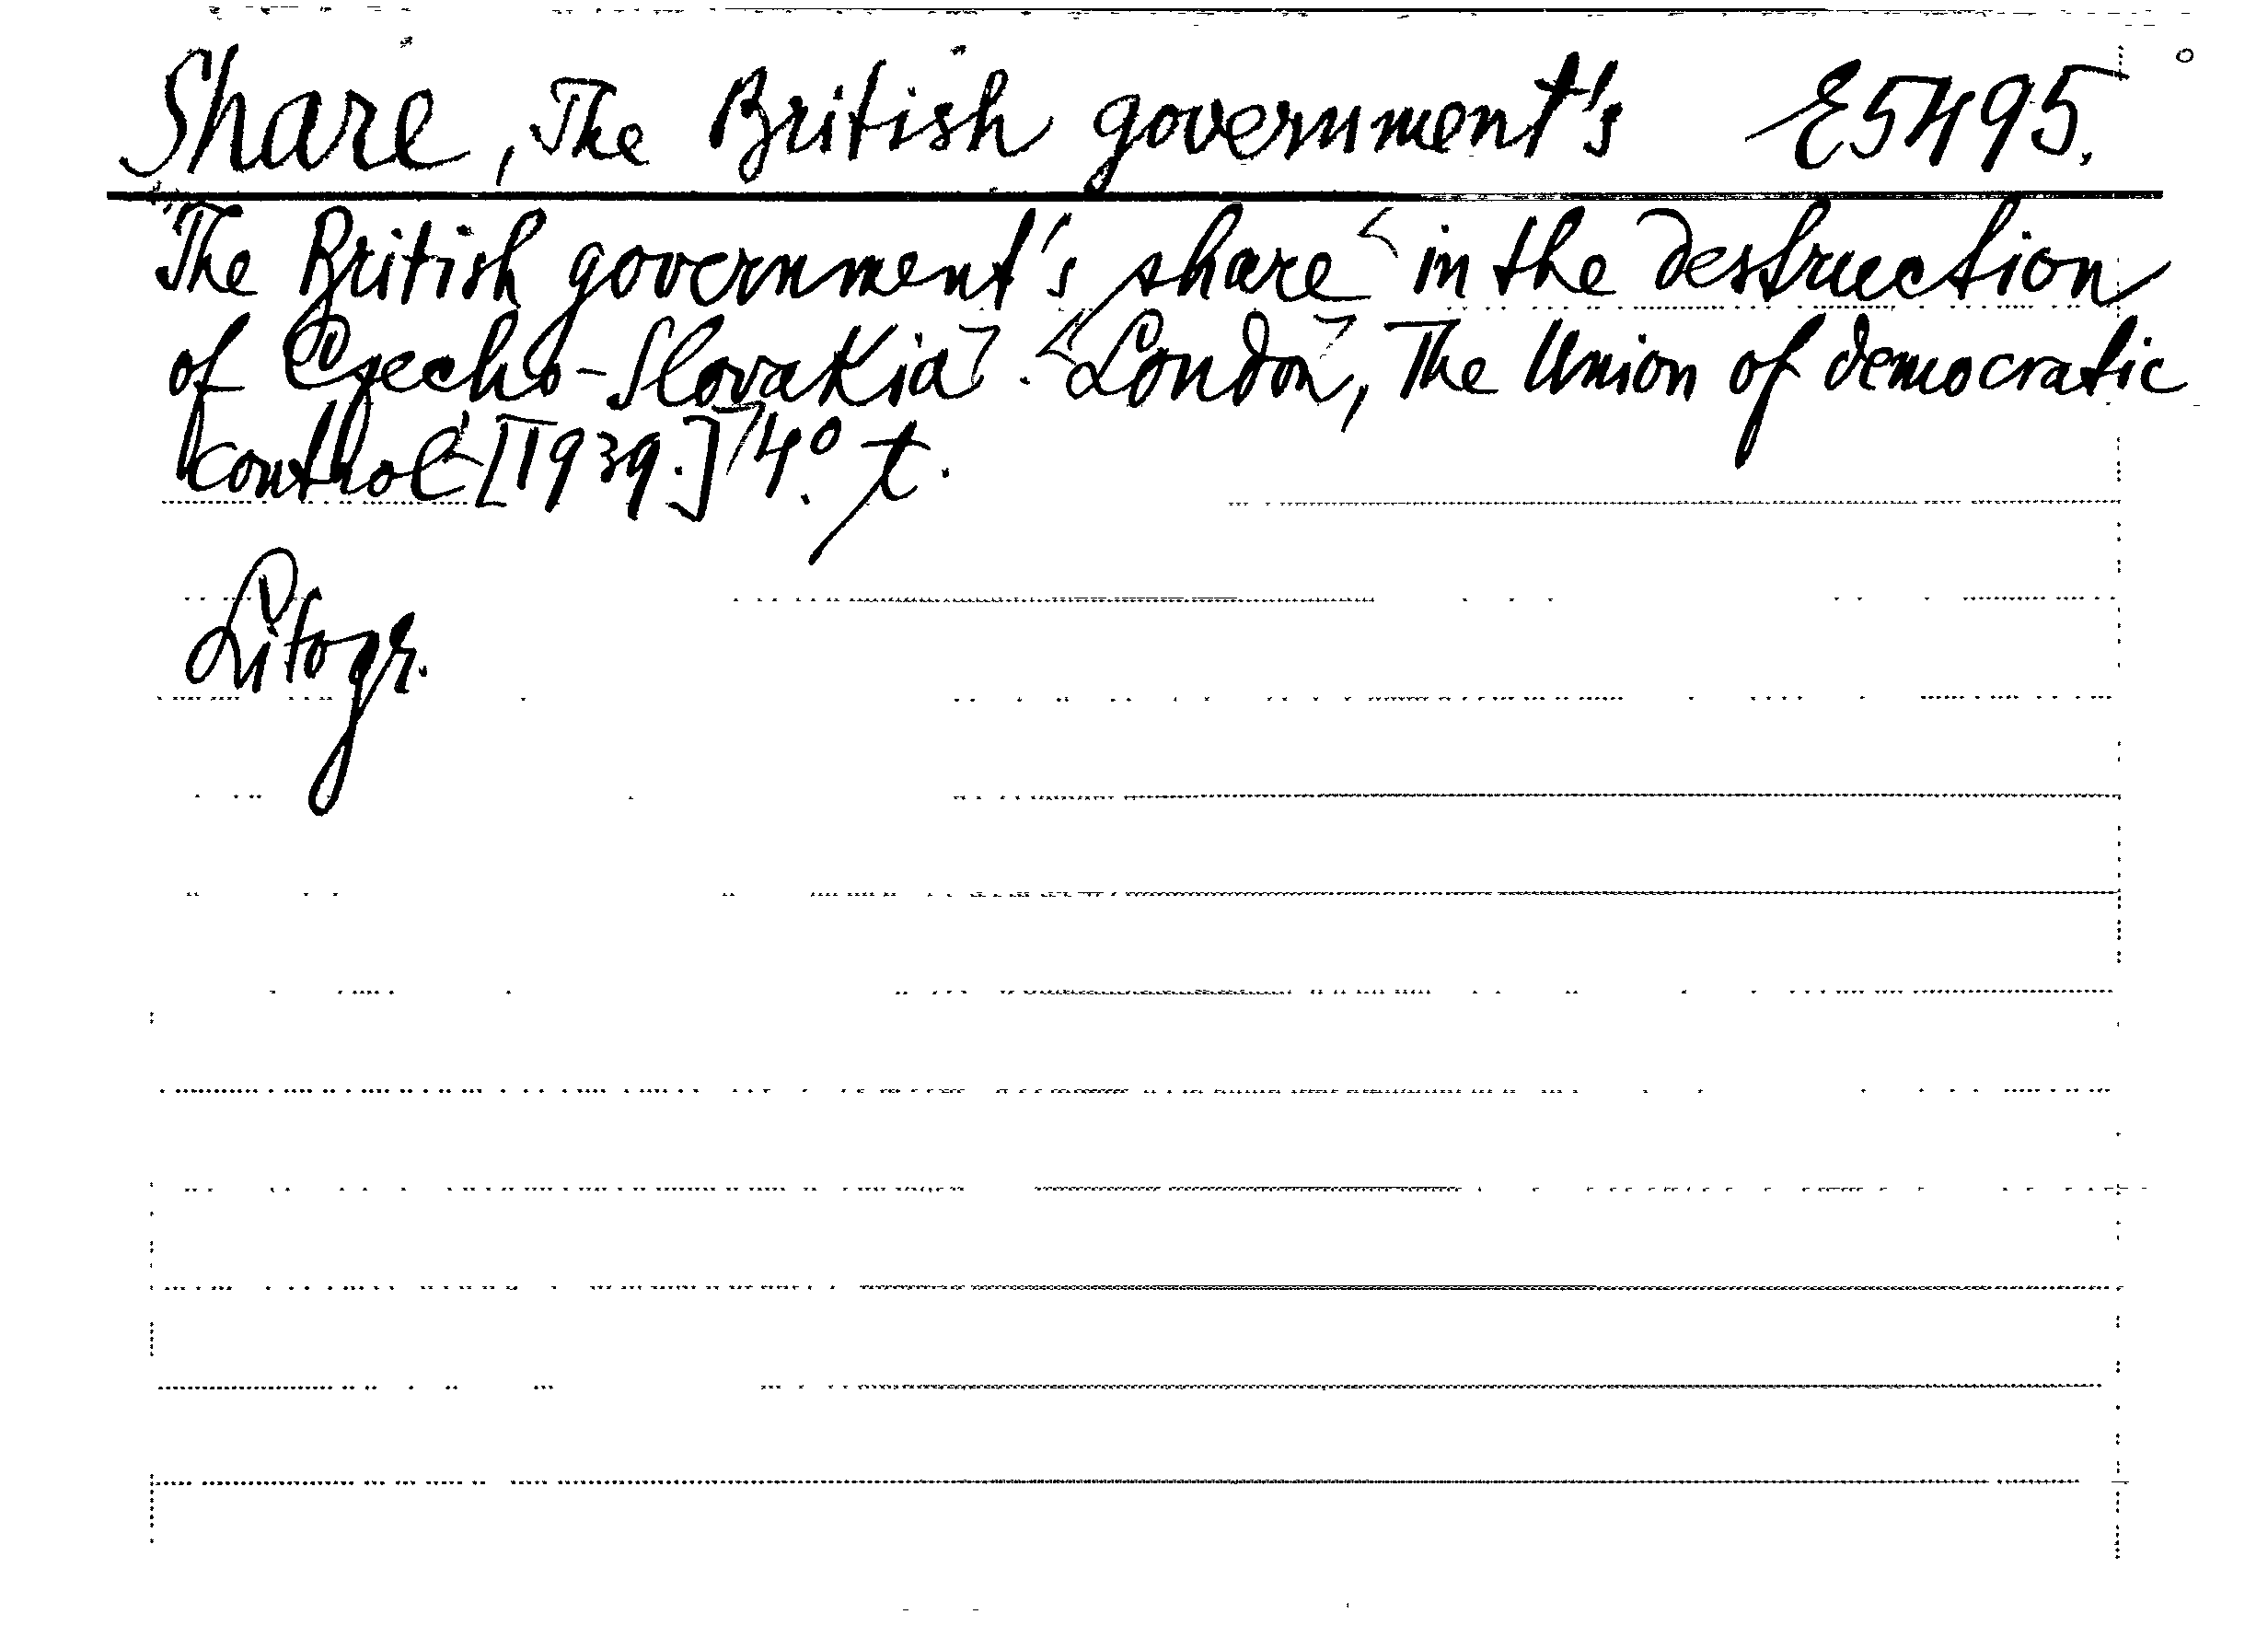 Share, The British government's E5495.
The British government's share in the destruction
of Czecho-Slovakia. London, The Union of democratic
control [1939.] 4° t.
Litogr.